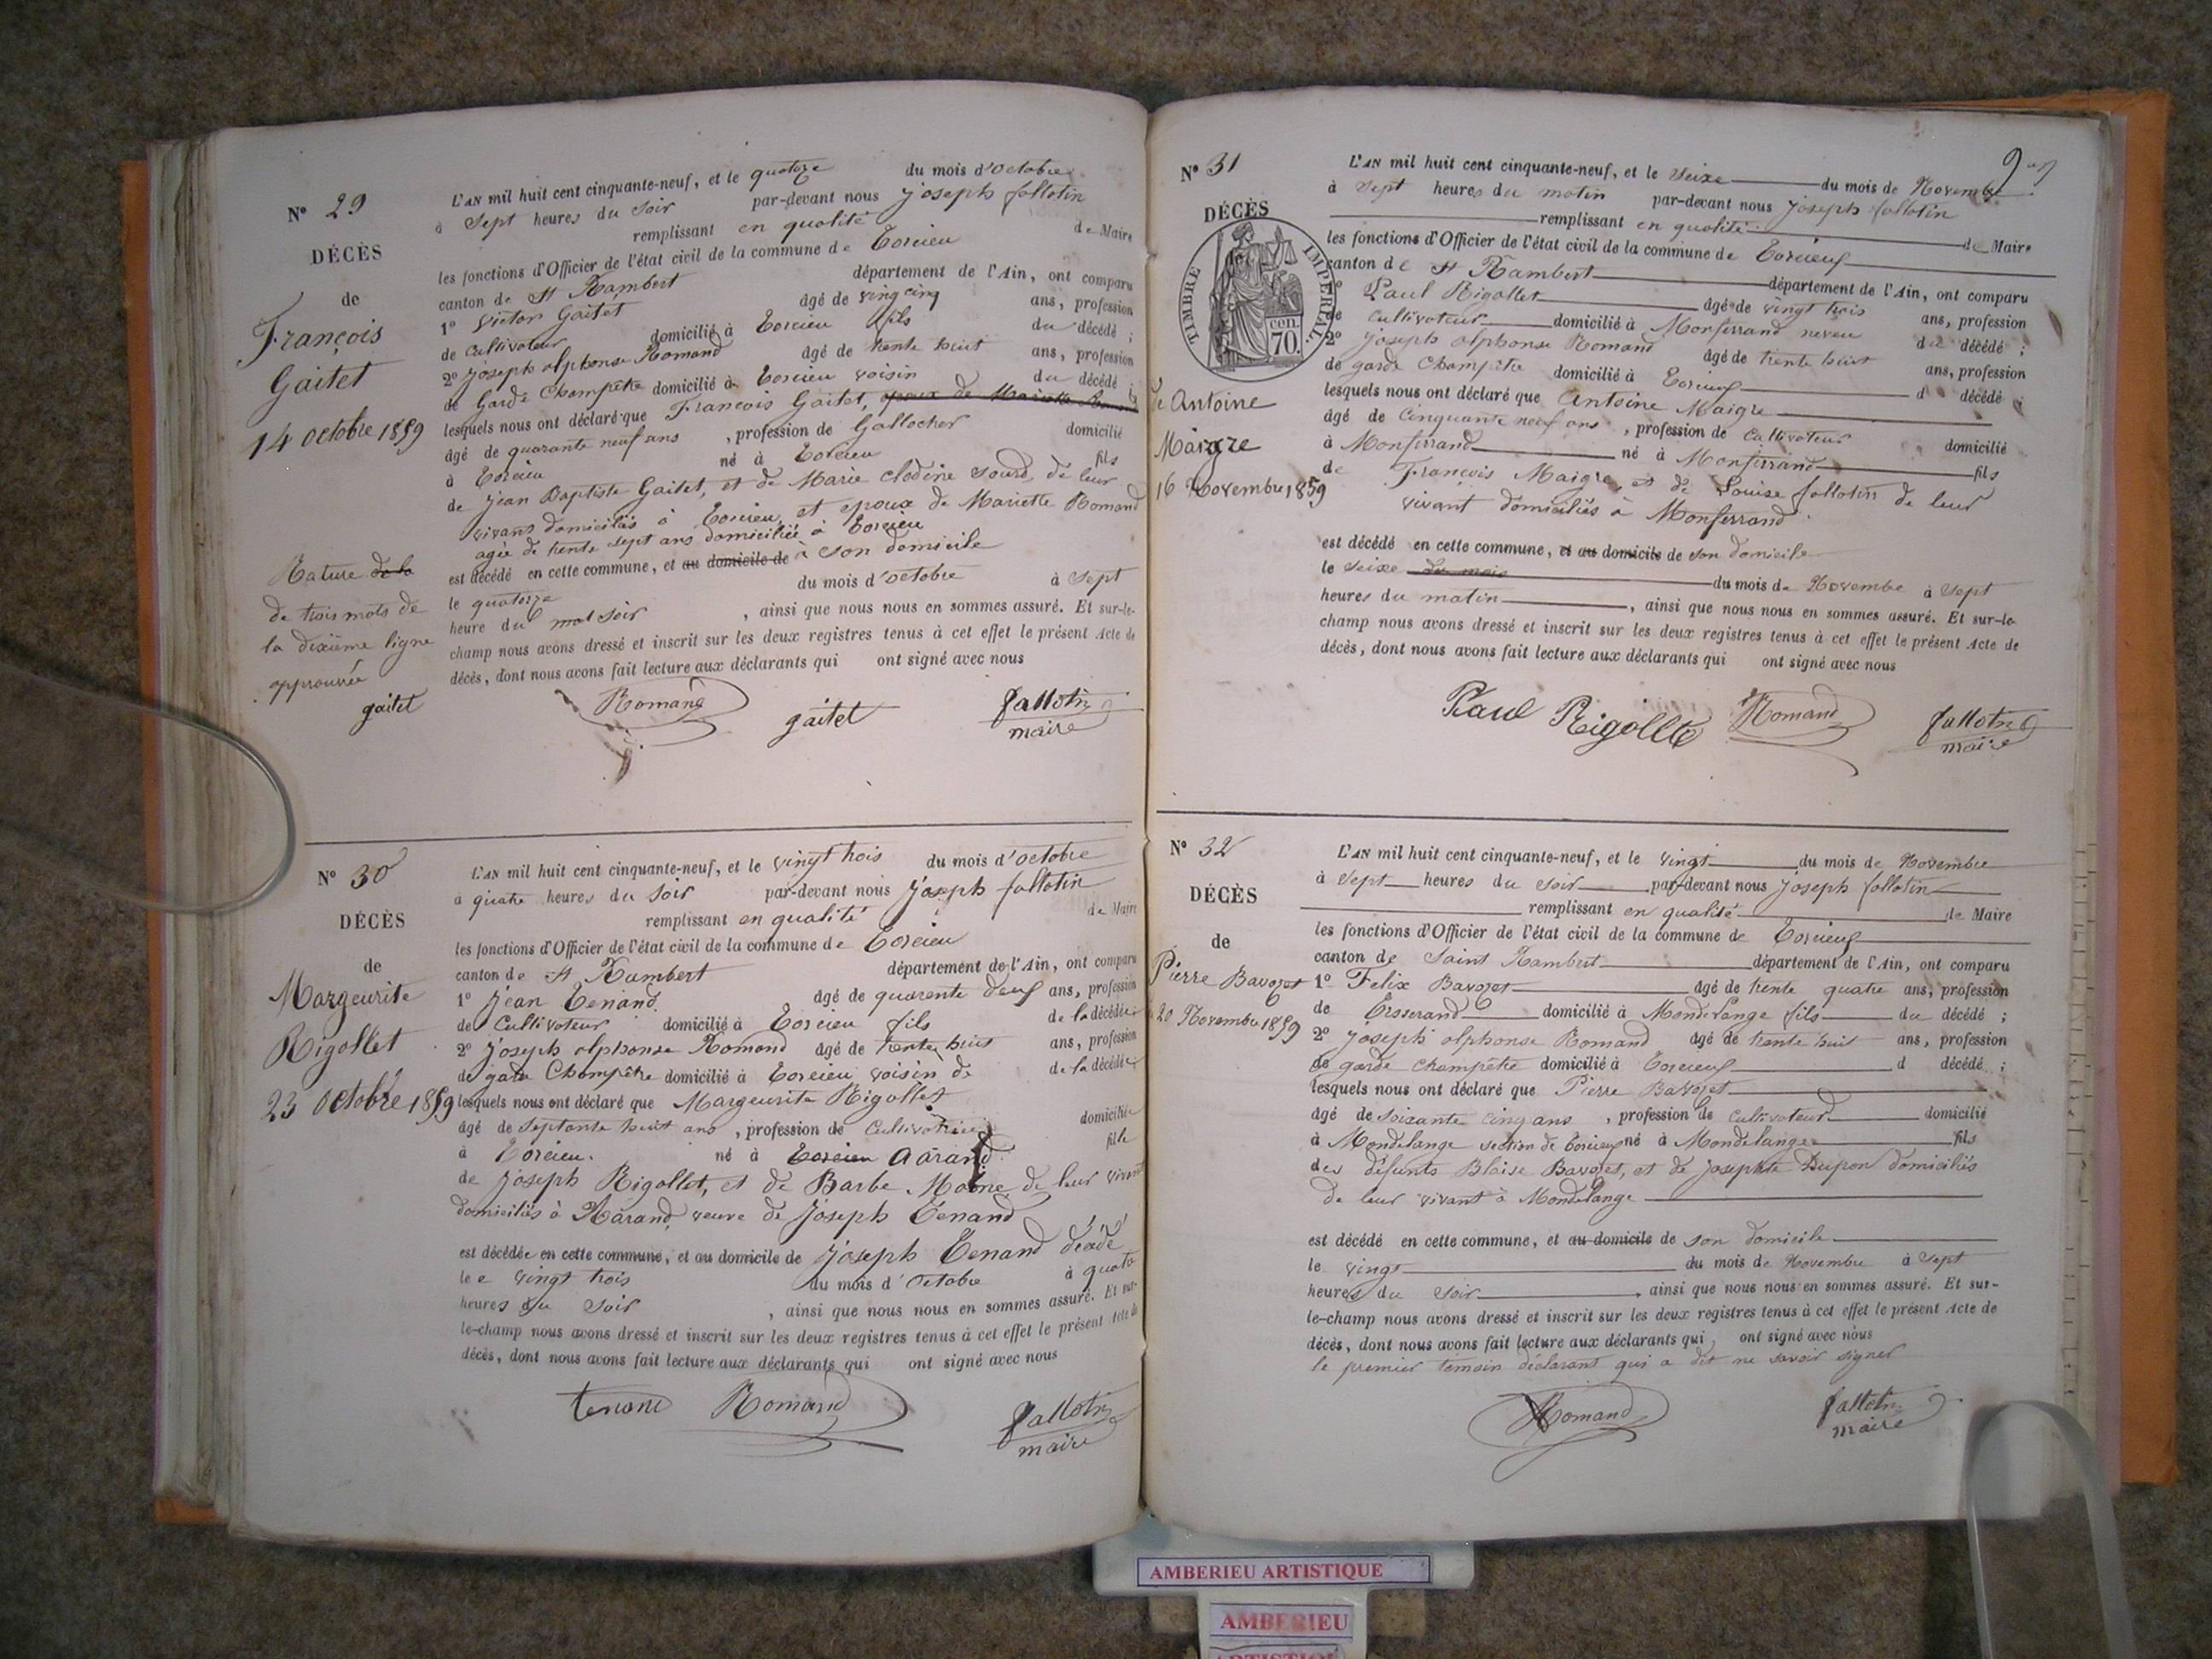 N° 29
DÉCÈS
de
François
Gaitet
14 octobre 1859
Rature de la
de trois mots de
la dixième ligne
approuvée
gaitet
L'AN mil huit cent cinquante-neuf, et le quatorze du mois d'octobre
à sept heures du soir par-devant nous joseph fallotin
remplissant en qualité de Maire
les fonctions d'Officier de l'état civil de la commune de Torcieu
canton de St Rambert département de l'Ain, ont comparu
1° Victor Gaitet âgé de vingt cinq ans, profession
de Cultivateur domicilié à Torcieu fils du décédé ;
2° joseph alphonse Romand âgé de trente huit ans, profession
de Garde Champêtre domicilié à Torcieu voisin du décédé ;
lesquels nous ont déclaré que François Gaitet, époux de Mariette Romand
âgé de quarante neuf ans , profession de Gallocher domicilié
à Torcieu né à Torcieu fils
de jean Baptiste Gaitet, et de Marie clodine Sourd, de leur
vivant domiciliés à Torcieu, et epoux de Mariette Romand
agée de trente sept ans domiciliée à Torcieu
est décédé en cette commune, et au domicile de à son domicile
le quatorze du mois d'octobre à sept
heure du mat soir , ainsi que nous nous en sommes assuré. Et sur-le-
champ nous avons dressé et inscrit sur les deux registres tenus à cet effet le présent Acte de
décès, dont nous avons fait lecture aux déclarants qui ont signé avec nous
Romand gaitet fallotin
maire
N° 30
DÉCÈS
de
Margeurite
Rigollet
23 octobre 1859
L'AN mil huit cent cinquante-neuf, et le vingt trois du mois d'octobre
à quatre heures du soir par-devant nous joseph fallotin
remplissant en qualité de Maire
les fonctions d'Officier de l'état civil de la commune de Torcieu
canton de St Rambert département de l'Ain, ont comparu
1° jean Tenand âgé de quarente deux ans, profession
de Cultivateur domicilié à Torcieu fils de la décédée
2° joseph alphonse Romand âgé de trente huit ans, profession
de garde Champêtre domicilié à Torcieu voisin de de la décédée
lesquels nous ont déclaré que Margeurite Rigollet
âgé de septante huit ans , profession de Cultivatrice domiciliée
à Torcieu. né à Torcieu Aarand fille
de joseph Rigollet, et de Barbe de leur vivant
domiciliés à Aarand, veuve de joseph Tenand
est décédée en cette commune, et au domicile de joseph Tenand décédé
le vingt trois du mois d'octobre à quatre
heures du soir , ainsi que nous nous en sommes assuré. Et sur-
le-champ nous avons dressé et inscrit sur les deux registres tenus à cet effet le présent Acte de
décès, dont nous avons fait lecture aux déclarants qui ont signé avec nous
tenand Romand fallotin
maire
N° 31
DÉCÈS
TIMBRE IMPÉRIAL
cen.
70.
de Antoine
Maigre
16 Novembre 1859
L'AN mil huit cent cinquante-neuf, et le seize du mois de Novembre
à sept heures du matin par-devant nous joseph fallotin
remplissant en qualité de Maire
les fonctions d'Officier de l'état civil de la commune de Torcieux
canton de St Rambert département de l'Ain, ont comparu
1° Paul Rigollet âgé de vingt trois ans, profession
de Cultivateur domicilié à Monferrand neveu du décédé ;
2° joseph alphonse Romand âgé de trente huit ans, profession
de garde Champêtre domicilié à Torcieux d décédé ;
lesquels nous ont déclaré que Antoine Maigre
âgé de Cinquante neuf ans , profession de Cultivateur domicilié
à Monferrand né à Monferrand fils
de François Maigre, et de Louise fallotin de leur
vivant domiciliés à Monferrand
est décédé en cette commune, et au domicile de son domicile
le seize du mois du mois de Novembe à sept
heures du matin , ainsi que nous nous en sommes assuré. Et sur-le-
champ nous avons dressé et inscrit sur les deux registres tenus à cet effet le présent Acte de
décès, dont nous avons fait lecture aux déclarants qui ont signé avec nous
Paul Rigollet Romand fallotin
maire
N° 32
DÉCÈS
de
Pierre Bavozet
20 Novembre 1859
L'AN mil huit cent cinquante-neuf, et le vingt du mois de Novembre
à sept heures du soir par-devant nous joseph fallotin
remplissant en qualité de Maire
les fonctions d'Officier de l'état civil de la commune de Torcieux
canton de Saint Rambert département de l'Ain, ont comparu
1° Felix Bavozet âgé de trente quatre ans, profession
de Tisserand domicilié à Mondelange fils du décédé ;
2° joseph alphonse Romand âgé de trente huit ans, profession
de garde champêtre domicilié à Torcieux d décédé ;
lesquels nous ont déclaré que Pierre Bavozet
âgé de soixante cinq ans , profession de Cultivateur domicilié
à Mondelange section de Torcieux né à Mondelange fils
des défunts Blaise Bavozet, et de josephte Dupon domiciliés
de leur vivant à Mondelange
est décédé en cette commune, et au domicile de son domicile
le vingt du mois de Novembre à sept
heures du soir , ainsi que nous nous en sommes assuré. Et sur-
le-champ nous avons dressé et inscrit sur les deux registres tenus à cet effet le présent Acte de
décès, dont nous avons fait lecture aux déclarants qui ont signé avec nous
le premier témoin déclarant qui a dit ne savoir signer
Romand fallotin
maire
AMBERIEU ARTISTIQUE
AMBERIEU
ARTISTIQUE